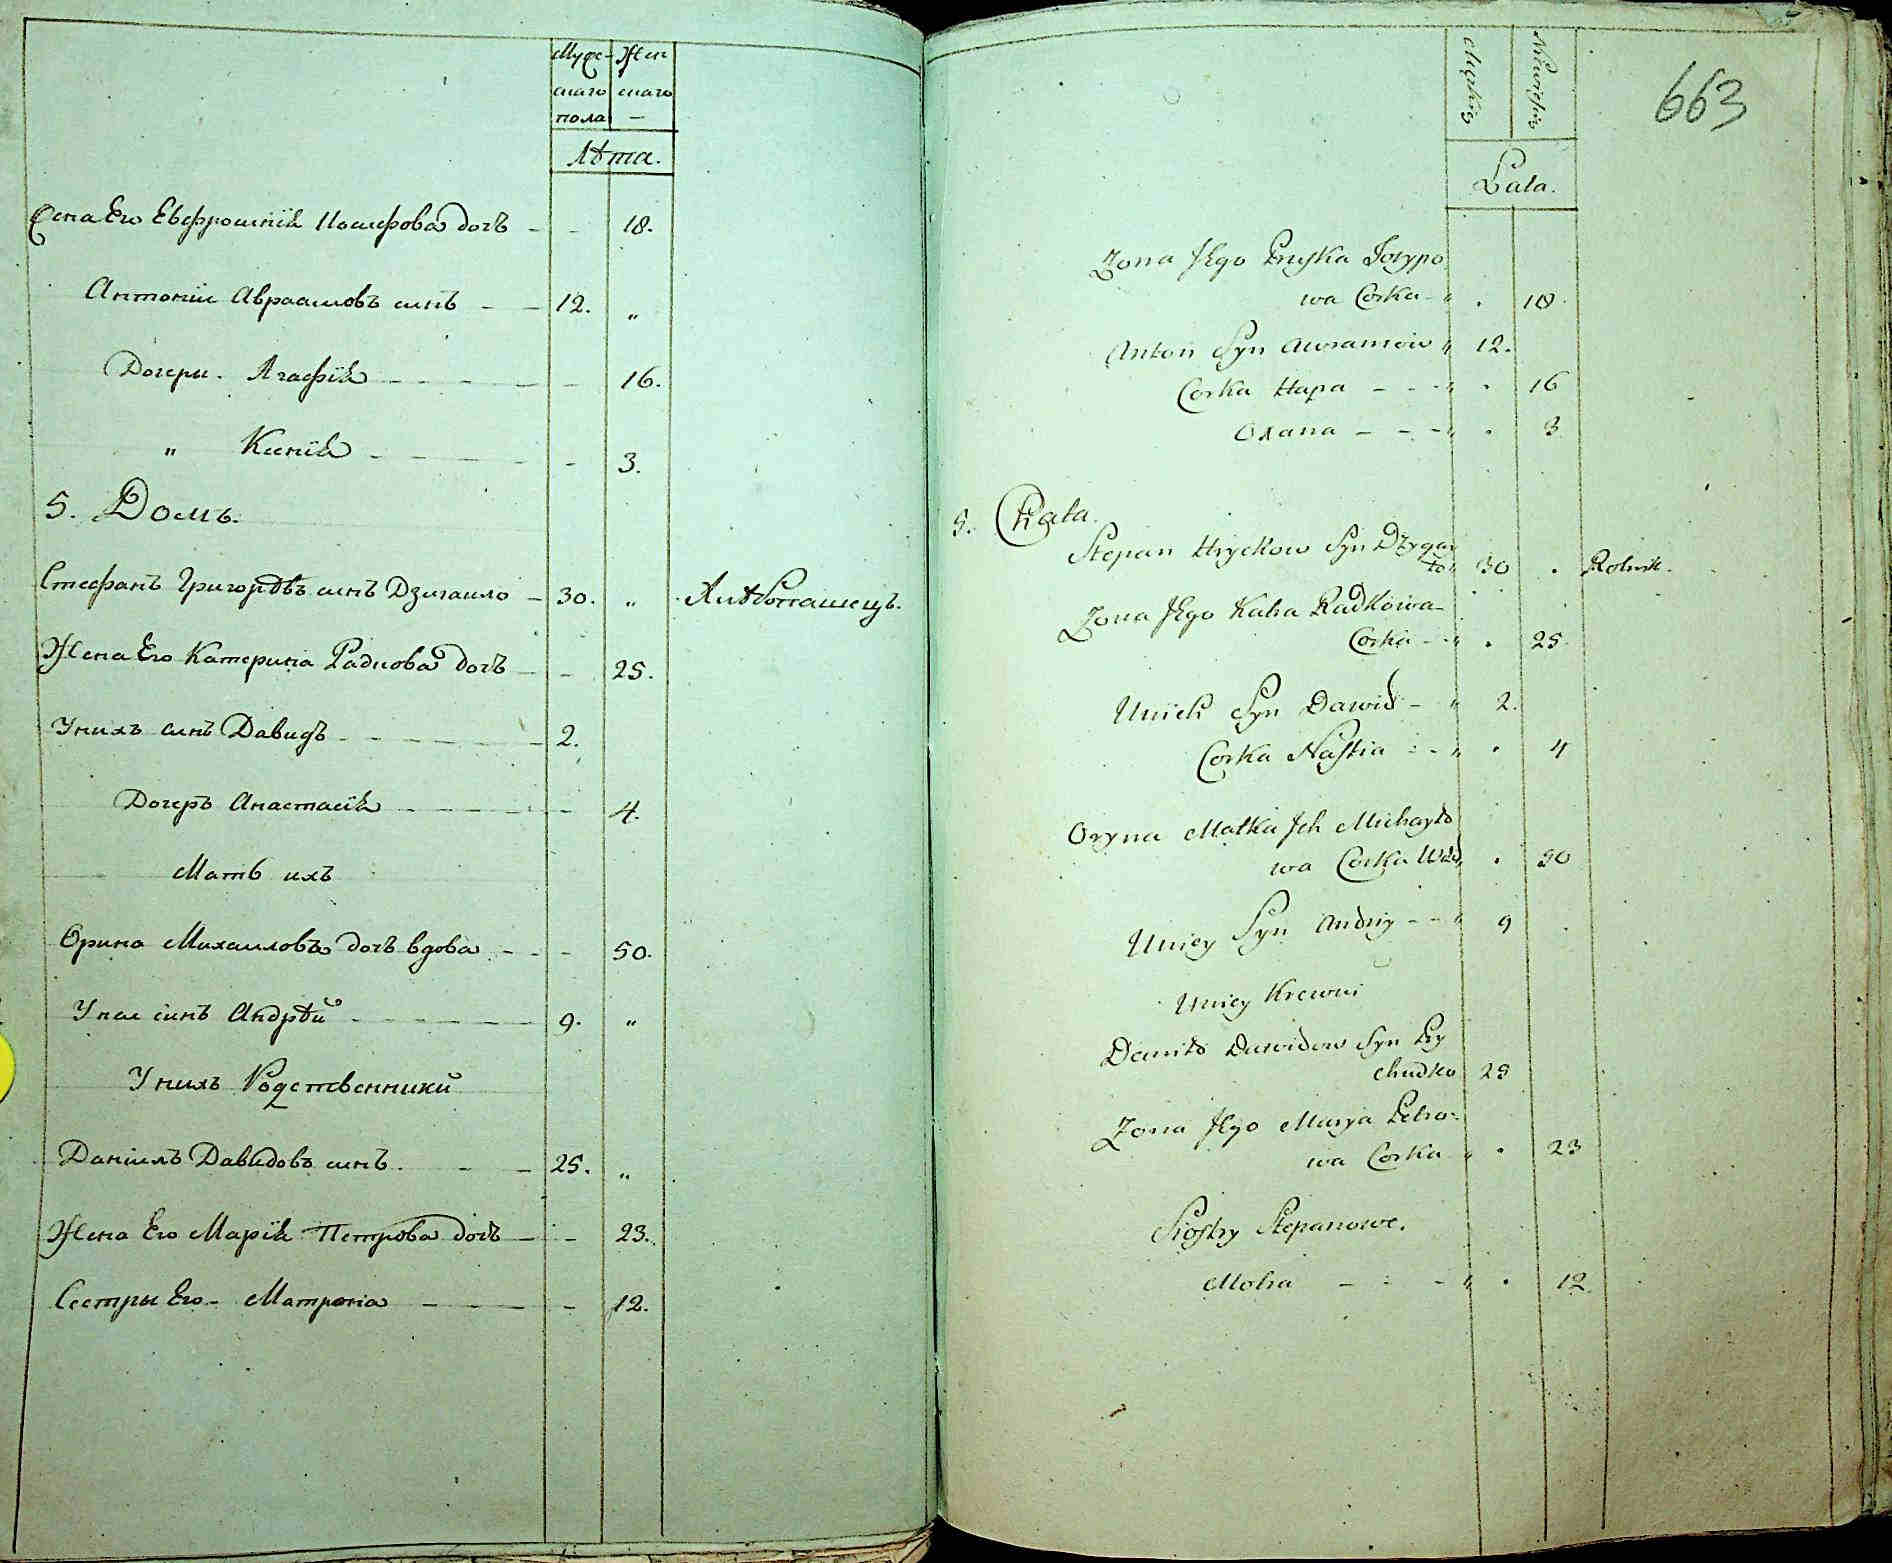 Муже- Жен
скаго скаго
пола –
Лѣта.
Жена Его Евфросинія Іосифова дочь – – 18.
Антоній Авраамовъ синъ – – 12. „
Дочери. Агафія – – – – – 16.
„ Ксенія – – – – – 3.
5. Домъ.
Стефанъ Григорѣвъ синъ Дзигаило – 30. „ Хлѣбопашецъ.
Жена Его Катерина Радкова дочь – – 25.
У нихъ синъ Давидъ – – – – 2.
Дочерь Анастасія – – – – – 4.
Мать ихъ
Орина Михаилова дочь вдова – – – 50.
У нея синъ Андрѣй – – – – 9. „
У нихъ Родственники
Даніилъ Давидовъ синъ. – – 25. „
Жена Его Марія Петрова дочь – – 23.
Сестры Его – Матрона – – – – 12.
663
Męzkiey Niewieskiey
Lata.
Zona Jego Pruska Josypo
wa Corka – „ . 18
Anton Syn Awramow „ 12.
Corka Hapa – – – „ . 16
Oxana – – – „ . 3
5. Chata.
Stepan Hryckow Syn Dzygay
ło „ 30 . Rolnik.
Zona Jego Kaha Radkowa–
Corka – – „ . 25.
Unich Syn Dawid – „ 2.
Corka Nastia – – „ . 4
Oryna Matka Ich Michayło
wa Corka Wdo „ . 50
Uniey Syn Andriy – – „ 9
Uniey Krewni
Daniło Dawidow Syn Py
chudko 25
Zona Jego Marya Petro–
wa Corka „ . 23
Siostry Stepanowe.
Motra – – – „ . 12